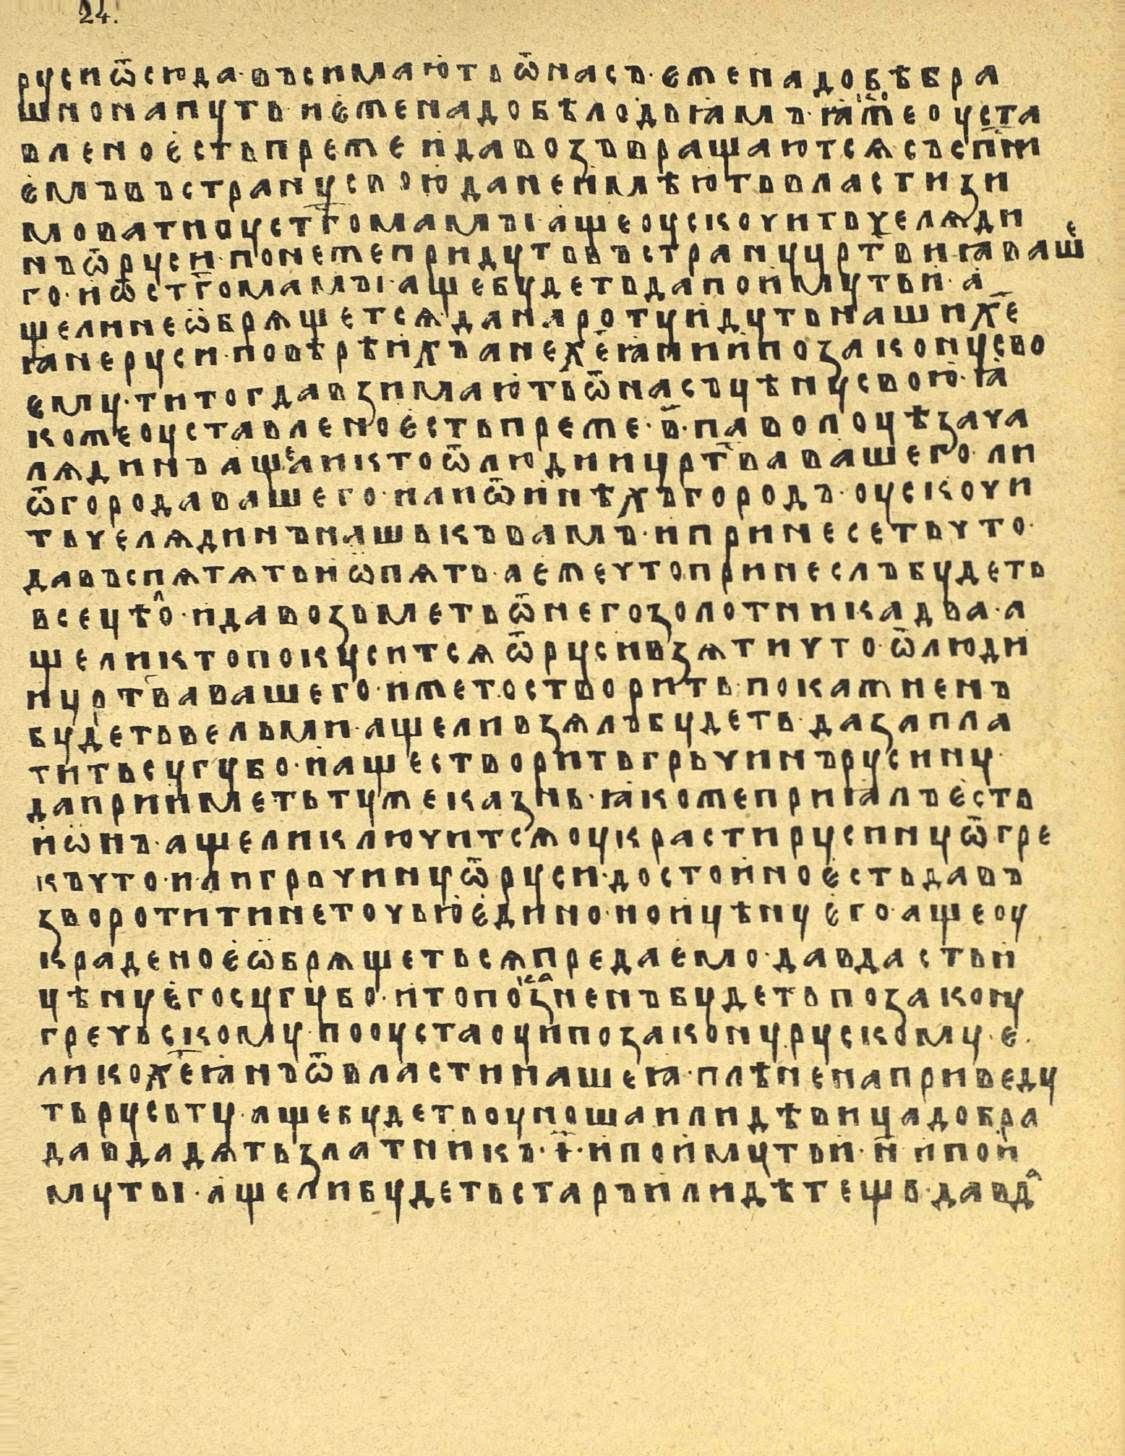 24.
руси ѿсюда· въсимають ѿ насъ· еже надобѣ бра
шно на путь· и еже надобѣ лодьꙗмъ· ꙗкоже оуста
влено есть преже· и да возъвращаютсѧ съ сп҃ниі
емъ въ страну свою· да не имѣють власти зи
мовати оу ст҃го мамы· аще оускочить челѧди
нъ ѿ руси· понеже придуть въ страну цр҃твиꙗ ваше
го· и ѿ ст҃го мамы· аще будеть да поимуть и· а
ще ли не ѡбрѧщетсѧ да на роту идуть наши хе҃
ꙗне руси· по вѣрѣ ихъ а не хе҃ꙗнии по закону сво
ему· ти тогда взимають ѿ насъ цѣну свою· ꙗ
коже оуставлено есть преже· в҃· паволоцѣ за ча
лѧдинъ аще ли кто ѿ людии цр҃тва вашего· ли
ѿ города вашего· или ѿ инѣхъ городъ· оускочи
ть челѧдинъ нашь къ вамъ· и принесеть что·
да въспѧтѧть и ѡпѧть· а еже что принеслъ будеть
все цѣло· и да возьметь ѿ него золотника два· а
ще ли кто покусится ѿ руси взѧти что· ѿ люди
и цр҃тва вашего· иже то створить покажненъ
будеть вельми· аще ли взѧлъ будеть· да запла
тить сугубо· и аще створить грьчинъ русину·
да прииметь ту же казнь· ꙗкоже приꙗлъ есть
и ѡнъ· аще ли ключитсѧ оукрасти русину ѿ гре
къ что· или грьчину ѿ руси· достоино есть да въ
зворотити не точью едино· но и цѣну его· аще оу
краденое ѡбрѧщетьсѧ предаемо· да вдасть и
цѣну его сугубо· и то показненъ будеть по закону
гречьскому· по оуставу и по закону рускому· е·
лико хе҃ꙗнъ ѿ власти нашеꙗ· плѣнена приведу
ть русь ту· аще будеть оуноша или дѣвица добра
да вдадѧть златникъ· і҃· и поимуть и· и· и пои
муть· аще ли будеть старъ или дѣтещь· да вда